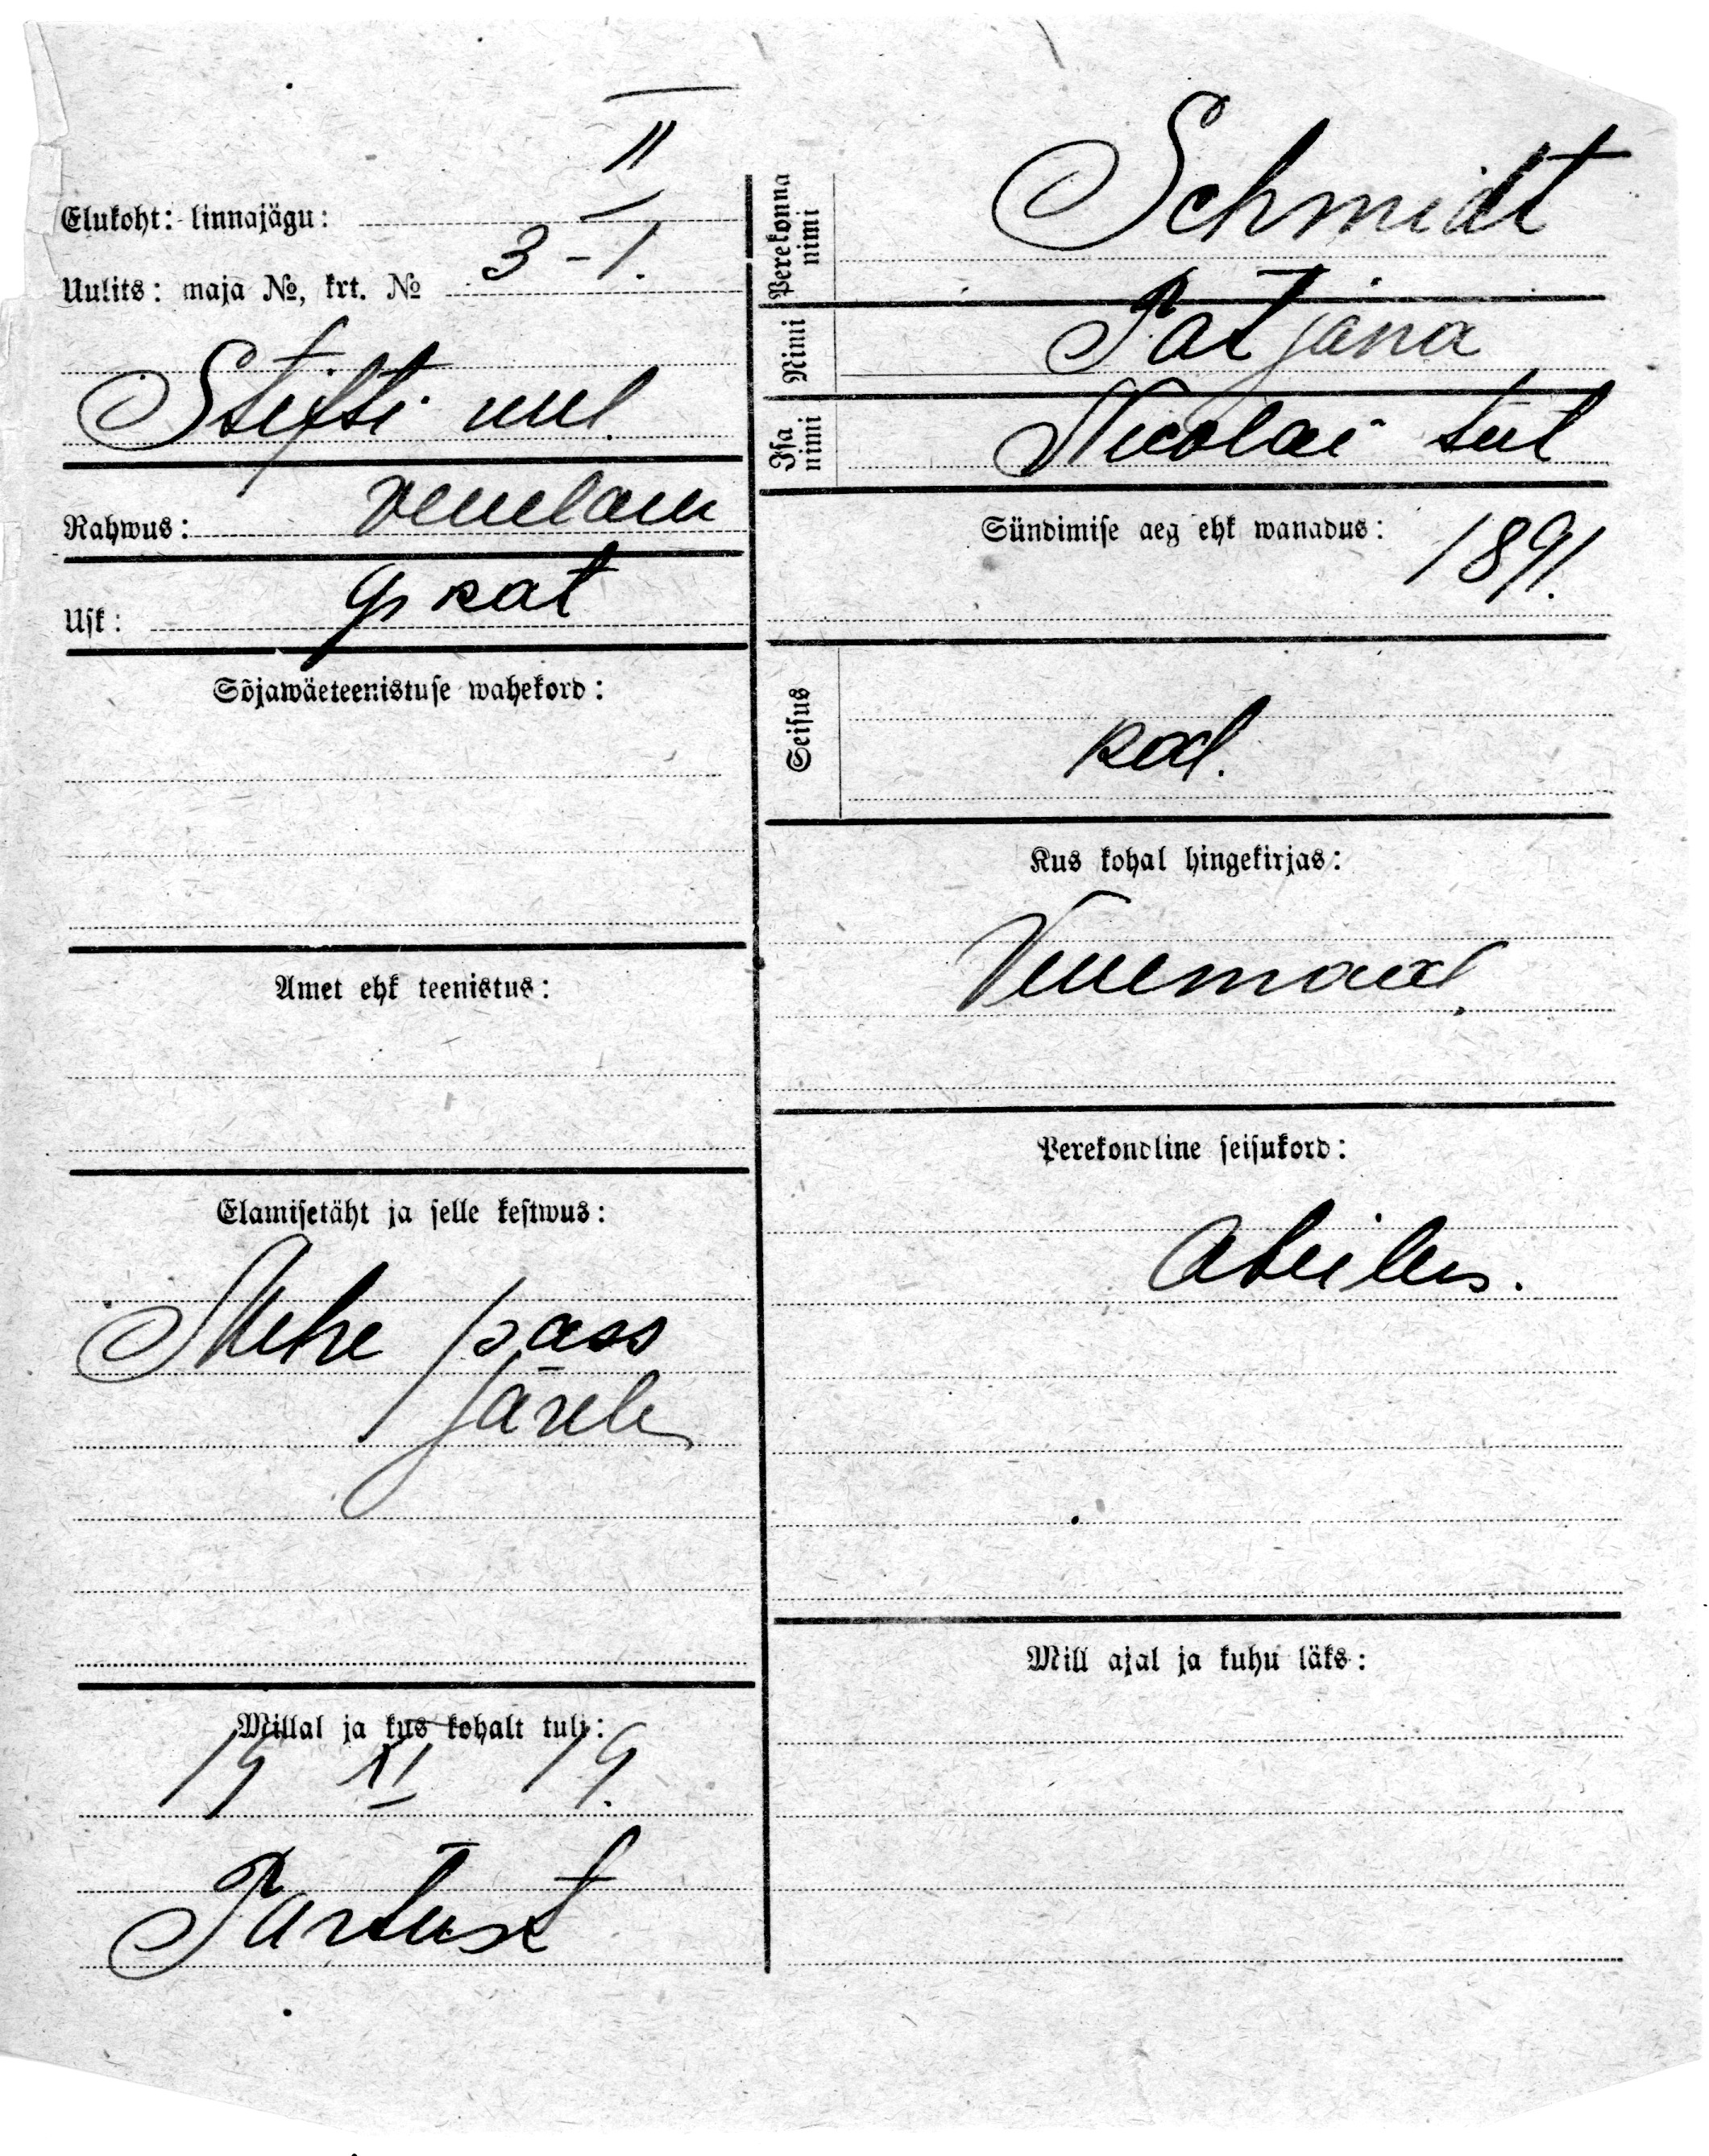 II
Elukoht: linnajägu:
3 - 1.
Uulits: maja №, krt. №
Stifti uul.
Rahwus: venelane
Usk: gr kat
Sõjawäeteenistuse wahekord:
Amet ehk teenistus:
Elamisetäht ja selle kestwus:
Mehe pass
järele
Millal ja kus kohalt tuli:
19 XI 19.
Tartust
Perekonna nimi Schmidt
Nimi Tatjana
Isa nimi Nicolai tüt
Sündimise aeg ehk wanadus: 1891.
Seisus kod.
Kus kohal hingekirjas:
Venemaal.
Perekondline seisukord:
Abielus.
Mill ajal ja kuhu läks: